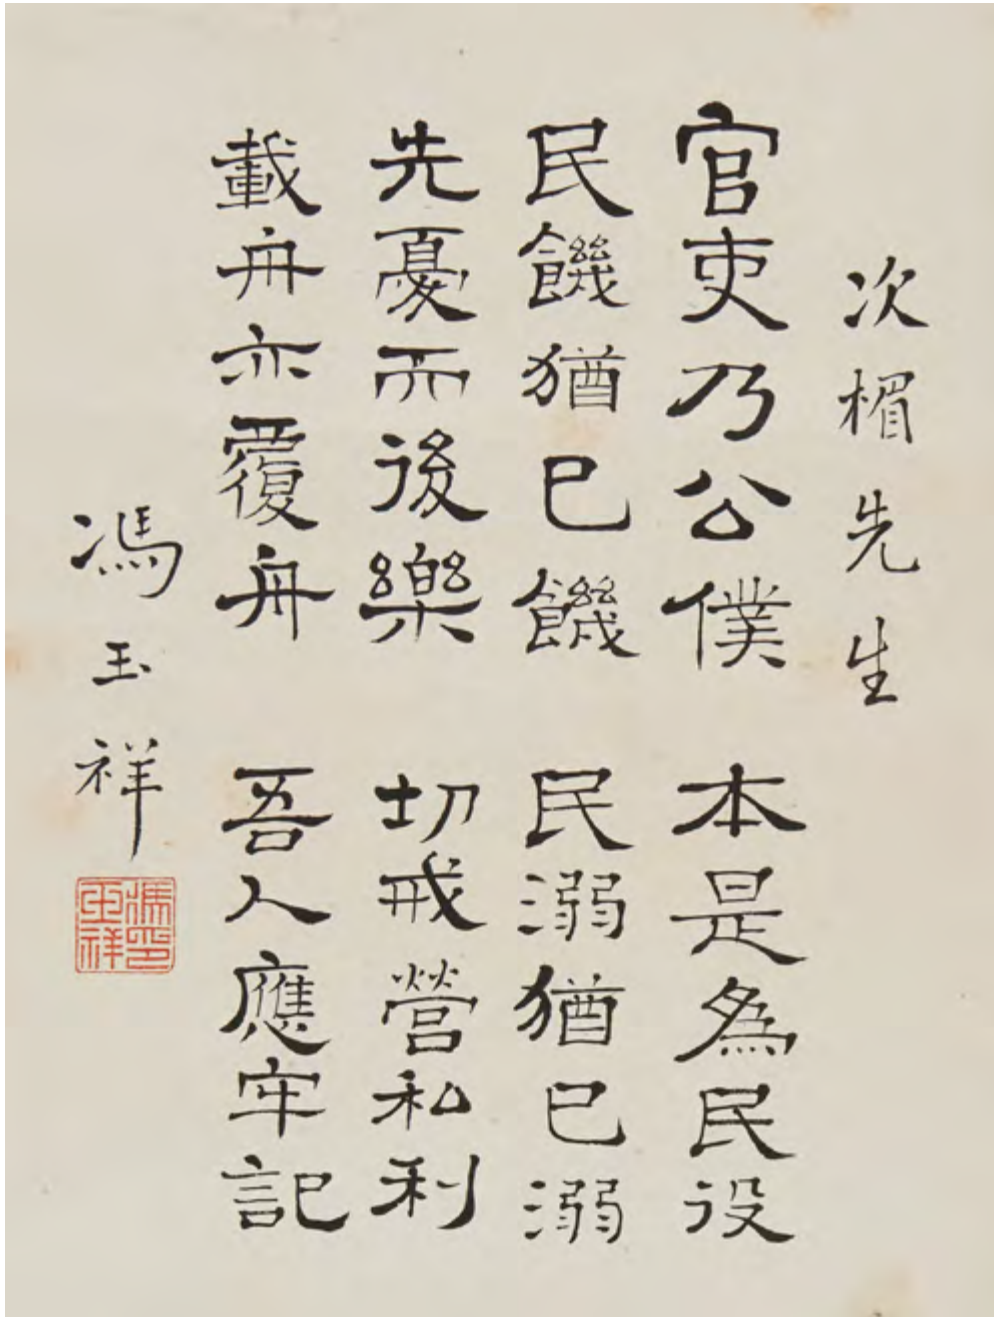 次楣先生
官吏乃公僕 本是為民役
民饑猶己饑 民溺猶己溺
先憂而後樂 切戒營私利
載舟亦覆舟 吾人應牢記
馮玉祥
馮玉祥印